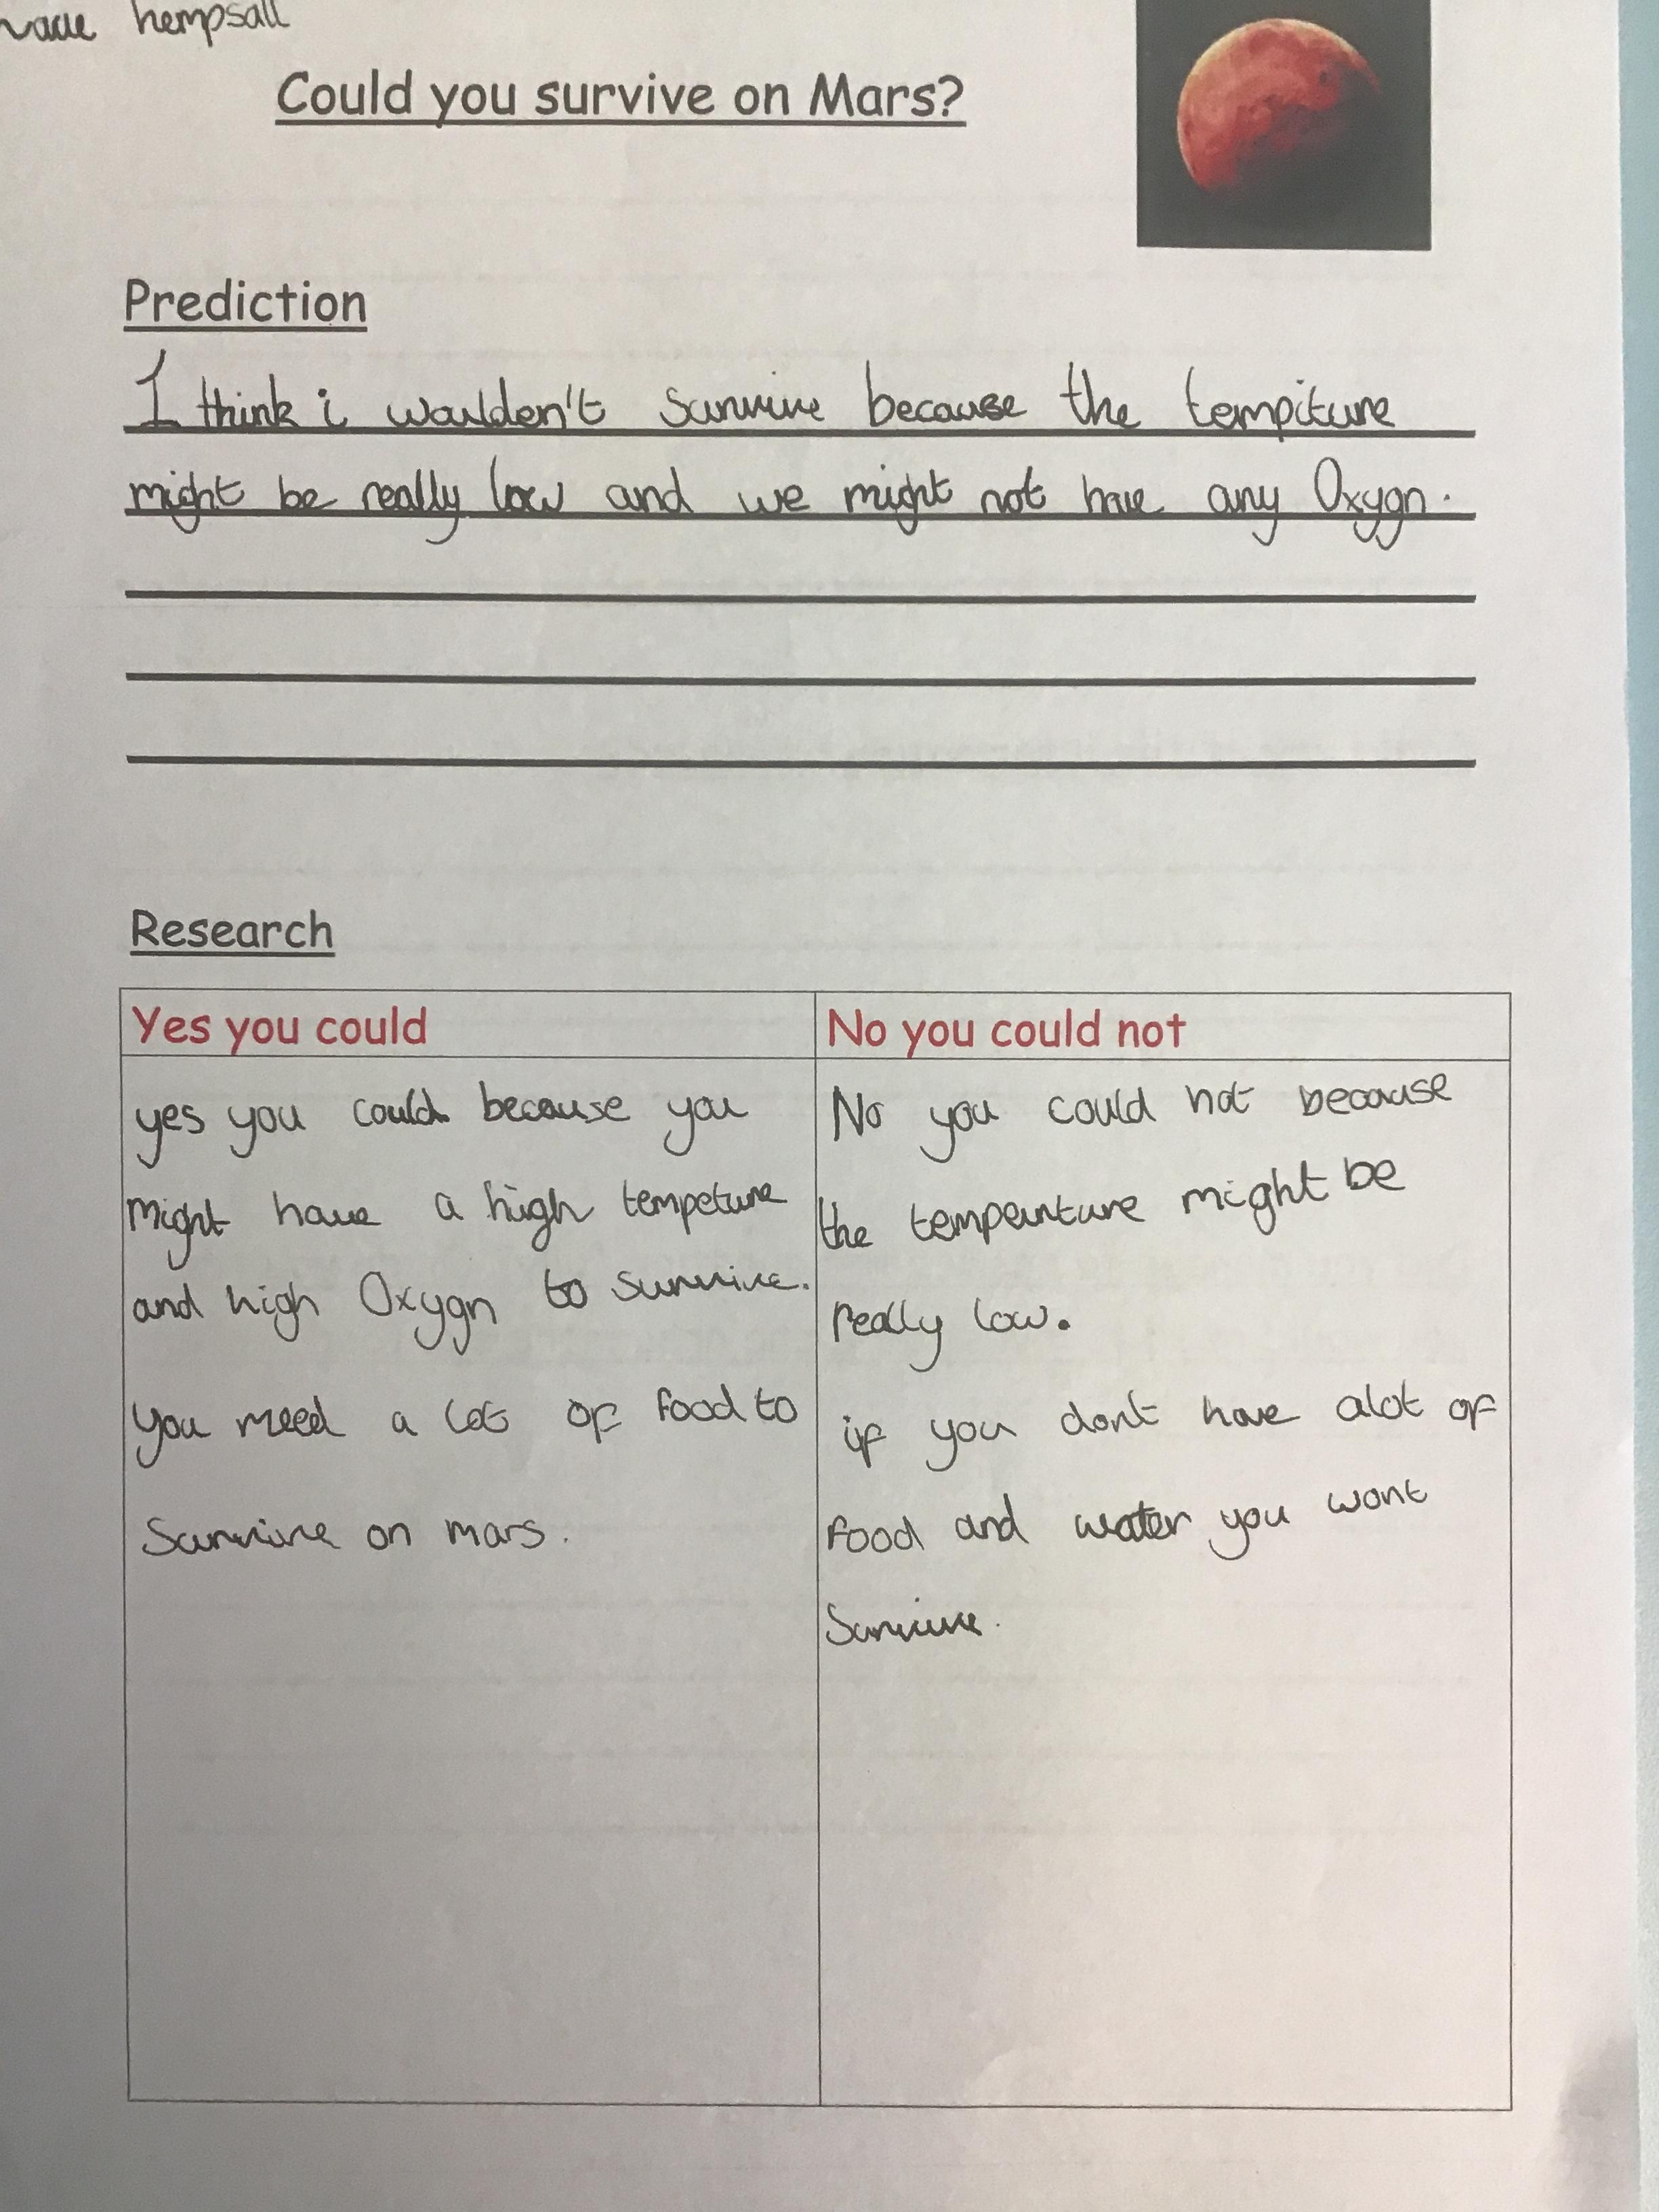 hempsall
Could you survive on Mars?
Prediction
I think i woulden't survive because the tempiture
might be really low and we might not have any Oxygn.
Research
Yes you could
yes you could because you
might have a high tempeture
and high Oxygn to survive.
you need a lot of food to
Survive on mars.
No you could not
No you could not because
the might be
really low.
if you dont have alot of
food and water you wont
Survive.